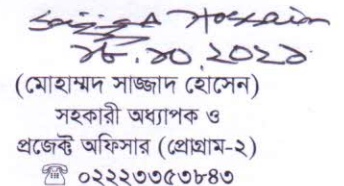 Sajjad Hossain
২৮.১০.২০২১
(মোহাম্মদ সাজ্জাদ হোসেন)
সহকারী অধ্যাপক ও
প্রজেক্ট অফিসার (প্রোগ্রাম-২)
☏ ০২২২৩৩৫৩৮৪৩